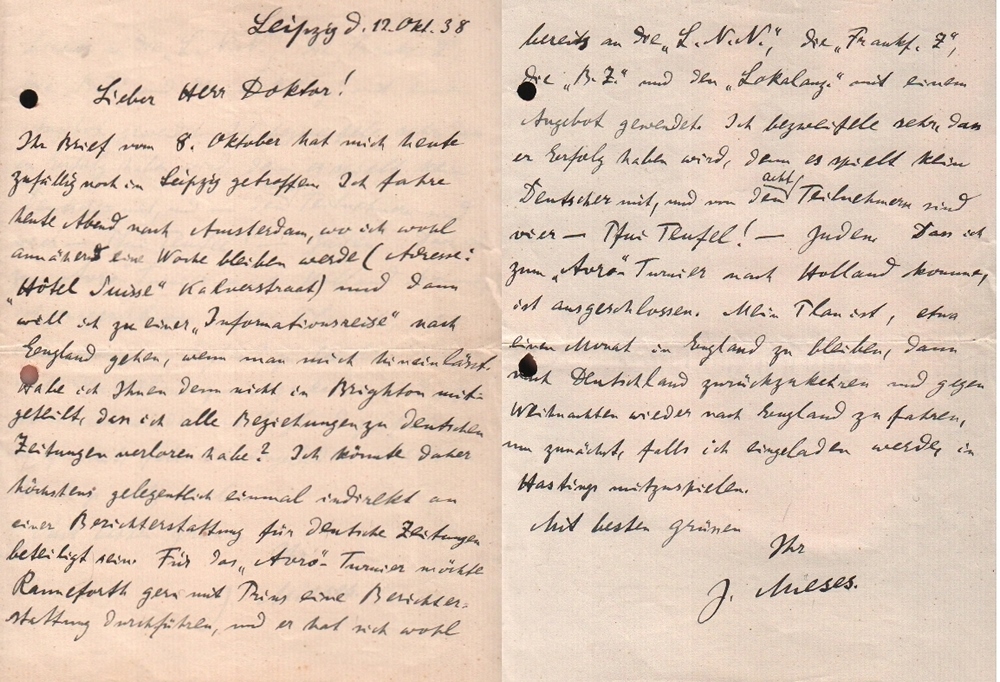 Leipzig d. 12. Okt. 38
Lieber Herr Doktor!
Ihr Brief vom 8. Oktober hat mich heute
zufällig noch in Leipzig getroffen. Ich fahre
heute Abend nach Amsterdam, wo ich wohl
annähernd eine Woche bleiben werde (Adresse:
„Hôtel Suisse" Kalverstraat) und dann
will ich zu einer „Informationsreise" nach
England gehen, wenn man mich hineinlässt.
Habe ich Ihnen denn nicht in Brighton mit-
geteilt, dass ich alle Beziehungen zu deutschen
Zeitungen verloren habe? Ich könnte daher
höchstens gelegentlich einmal indirekt an
einer Berichterstattung für deutsche Zeitungen
beteiligt sein. Für das „Avro"- Turnier möchte
Ranneforth gern mit Prins eine Berichter-
stattung durchführen, und er hat sich wohl
bereits an die „L. N. N.", die „Frankf. Z",
die „B. Z." und den „Lokalanz." mit einem
Angebot gewendet. Ich bezweifele sehr, dass
er Erfolg haben wird, denn es spielt kein
Deutscher mit, und von den acht Teilnehmern sind
vier — Pfui Teufel! — Juden. Dass ich
zum „Avro"- Turnier nach Holland komme,
ist ausgeschlossen. Mein Plan ist, etwa
einen Monat in England zu bleiben, dann
nach Deutschland zurückzukehren und gegen
Weihnachten wieder nach England zu fahren,
um zunächst, falls ich eingeladen werde, in
Hastings mitzuspielen.
Mit besten Grüssen
Ihr
J. Mieses.